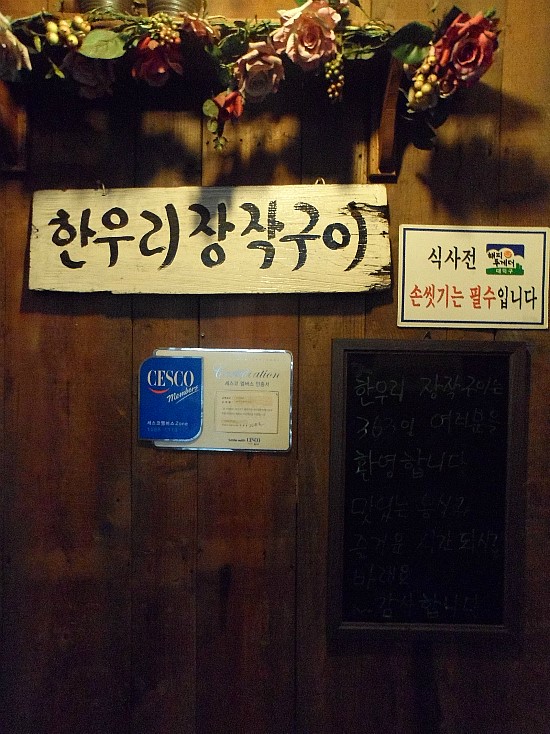 한우리장작구이
식사전
해피투게더
대덕구
손씻기는 필수입니다
CESCO
Members
세스코멤버스 Zone
Certification
세스코 멤버스 인증서
CESCO
한우리 장작구이는
365일 여러분을
환영합니다
맛있는 음식과
즐거운 시간 되시길
바래요
감사합니다